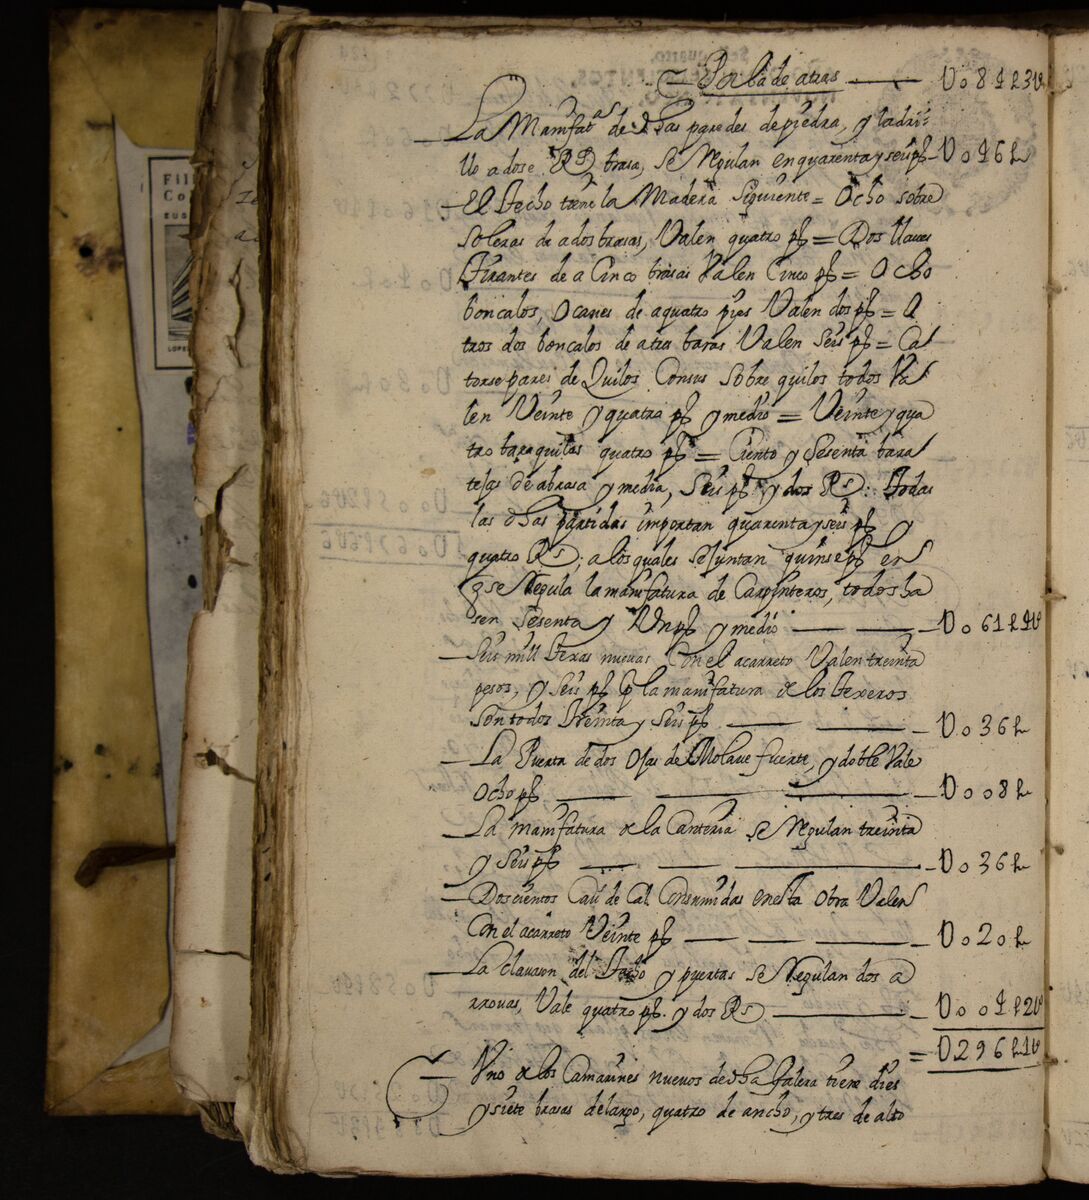 Por la de atras — U084L3U
La Manifatᵃ de dhas paredes de piedra, y ladri-
llo a dose Rs brasa, se Regulan en quarenta y seis ps — U046L
El Techo tiene la Madera siguiente = Ocho sobre
soleras de a dos brasas, Valen quatro ps = Dos llaves
tirantes de a Cinco brasas Valen Cinco ps = Ocho
boncalos, o canes de a quatro pies Valen dos ps = O
tros dos boncalos de a tres baras Valen seis ps = Ca
torse pares de Quilos Consus Sobre quilos todos Va
len Veinte y quatro ps y medio = Veinte y qua
tro baraquilas quatro ps = Ciento y Sesenta bara
tejas de a brasa y media, Seis ps y dos Rs: todas
las dhas partidas importan quarenta y seis ps y
quatro Rs; a los quales se juntan quinse ps en
q se Regula la manifatura de Carpinteros, todos ha
sen Sesenta y Un ps y medio — U061L4U
Seis mill texas nuevas Con el acarreto Valen treinta
pesos, y Seis ps p la manifatura de los texeros
son todos treinta y seis ps — U036L
La Puerta de dos Ojas de Molave fuerte, y doble Vale
Ocho ps — U008L
La manifatura de la Canteria se Regulan treinta
y seis ps — U036L
Doscientos Cav de Cal Consumidas en esta obra Valen
Con el acarreto Veinte ps — U020L
La clavason del Techo y puertas se Regulan dos a
rrovas, Vale quatro ps. y dos Rs — U004L2U
= U296L1U
Uno de los Camarines nuevos de dha Galera tiene dies
y siete brasas de largo, quatro de ancho, y tres de alto